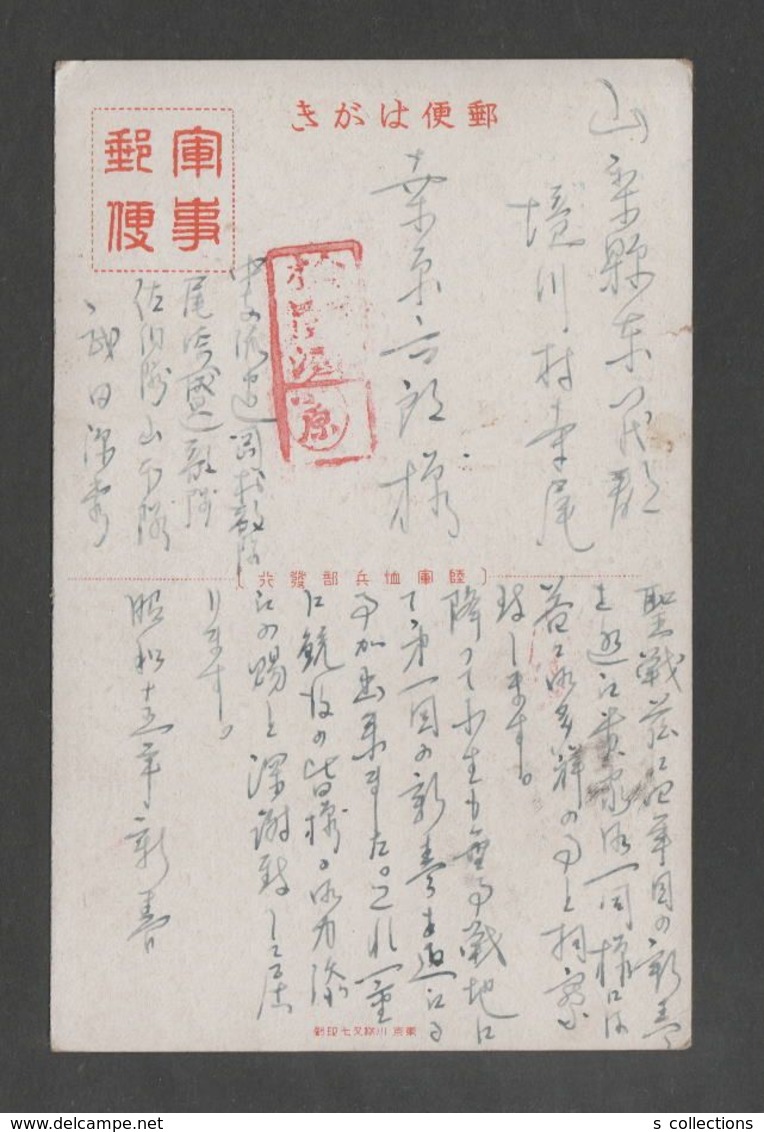 郵便はがき
軍事
郵便
山梨縣東八代郡
境川村寺尾
栗原六郎様
中支派遣岡村部隊
佐伯隊山本隊
武田
陸軍恤兵部發行
聖戰茲に四年目の新春
を迎へ貴家御一同様には
益々御多祥の事と拝察
致します。
降って小生も無事戰地に
て第一回の新春を迎へる
事が出来ました。これ一重
に銃後の皆様の御力添
への賜と深謝致して居
ります。
昭和十五年新春
東京 川瀬又七印刷
s collections